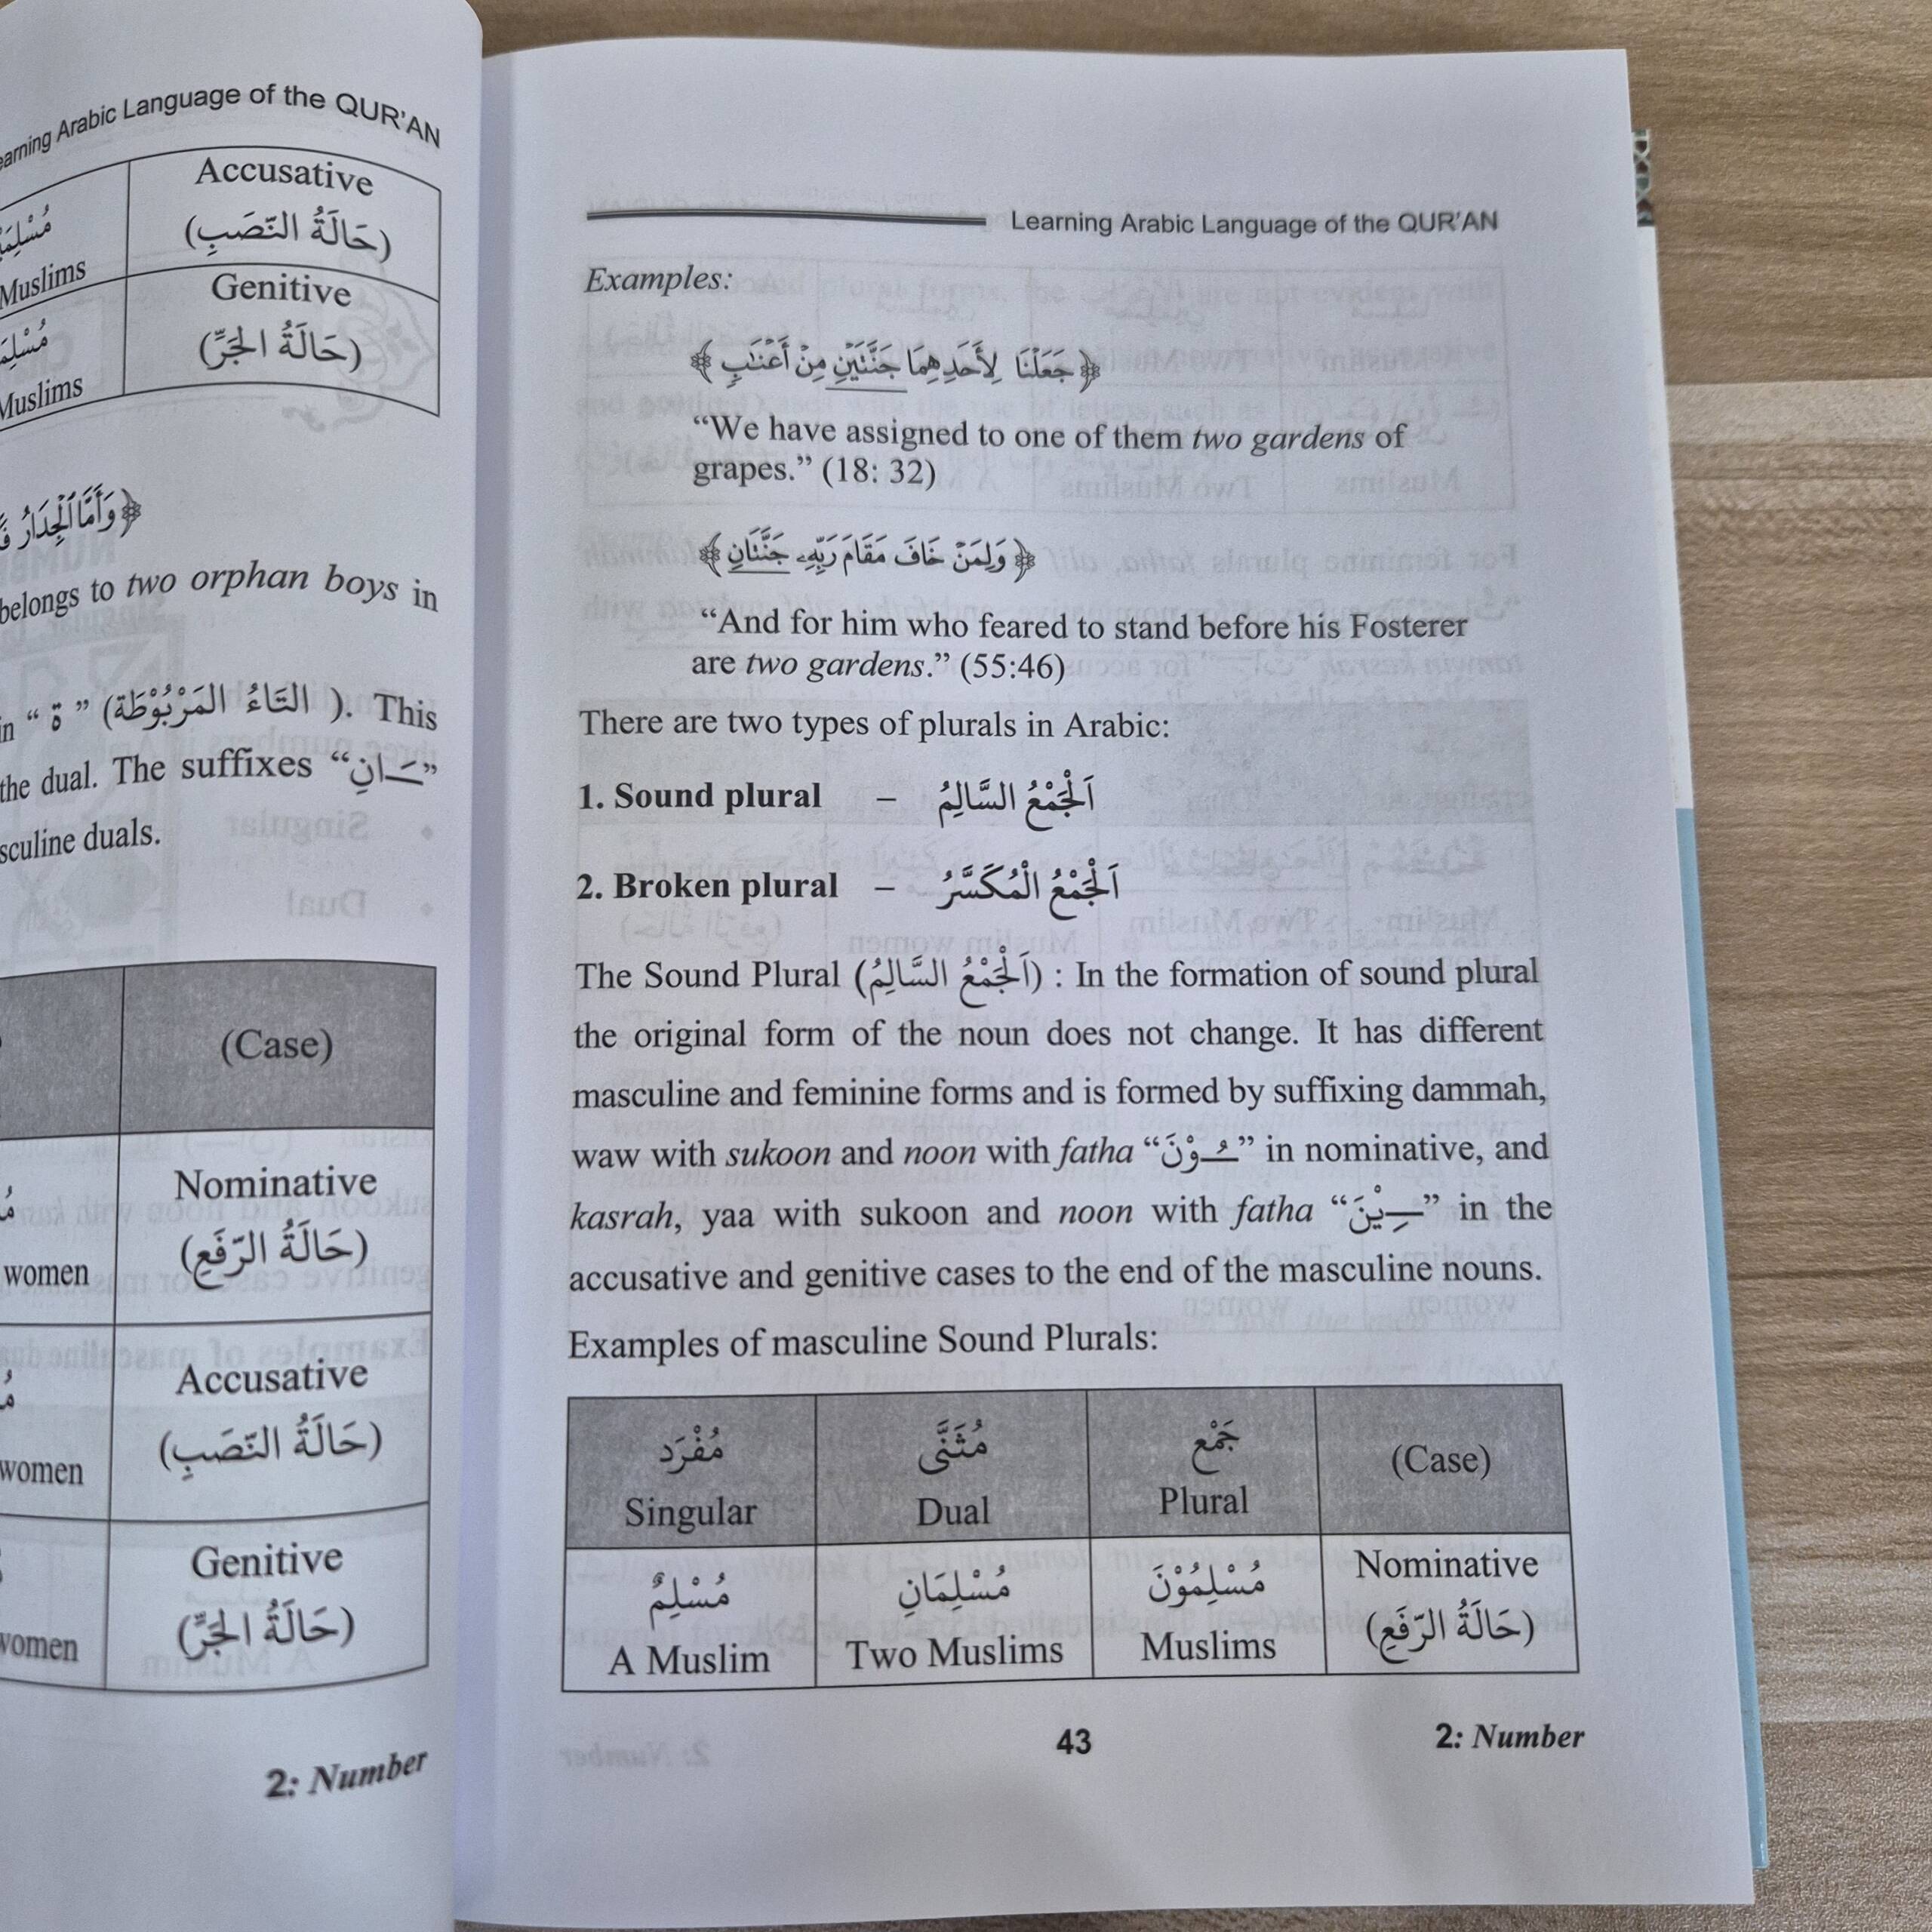 Learning Arabic Language of the QUR'AN
Accusative
(حَالَةُ النَّصَبِ)
Muslims
Genitive
(حَالَةُ الجَرِّ)
Muslims
﴿وَأَمَّا ٱلْجِدَارُ
belongs to two orphan boys in
in “ ة ” (التَاءُ المَرْبُوْطَة ). This
the dual. The suffixes “ـَـانِ”
sculine duals.
(Case)
Nominative
(حَالَةُ الرَّفَعِ)
women
Accusative
(حَالَةُ النَّصَبِ)
women
Genitive
(حَالَةُ الجَرِّ)
women
2: Number
Learning Arabic Language of the QUR'AN
Examples:
﴿ جَعَلْنَا لِأَحَدِهِمَا جَنَّتَيْنِ مِنْ أَعْنَٰبٍ ﴾
“We have assigned to one of them two gardens of
grapes.” (18: 32)
﴿ وَلِمَنْ خَافَ مَقَامَ رَبِّهِۦ جَنَّتَانِ ﴾
“And for him who feared to stand before his Fosterer
are two gardens.” (55:46)
There are two types of plurals in Arabic:
1. Sound plural – اَلْجَمْعُ السَّالِمُ
2. Broken plural – اَلْجَمْعُ الْمُكَسَّرُ
The Sound Plural (اَلْجَمْعُ السَّالِمُ) : In the formation of sound plural
the original form of the noun does not change. It has different
masculine and feminine forms and is formed by suffixing dammah,
waw with sukoon and noon with fatha “ـُـوْنَ” in nominative, and
kasrah, yaa with sukoon and noon with fatha “ـِـيْنَ” in the
accusative and genitive cases to the end of the masculine nouns.
Examples of masculine Sound Plurals:
مُفْرَد مُثَنَّى جَمْع
Singular Dual Plural (Case)
مُسْلِمٌ مُسْلِمَانِ مُسْلِمُوْنَ Nominative
A Muslim Two Muslims Muslims (حَالَةُ الرَّفَعِ)
43 2: Number